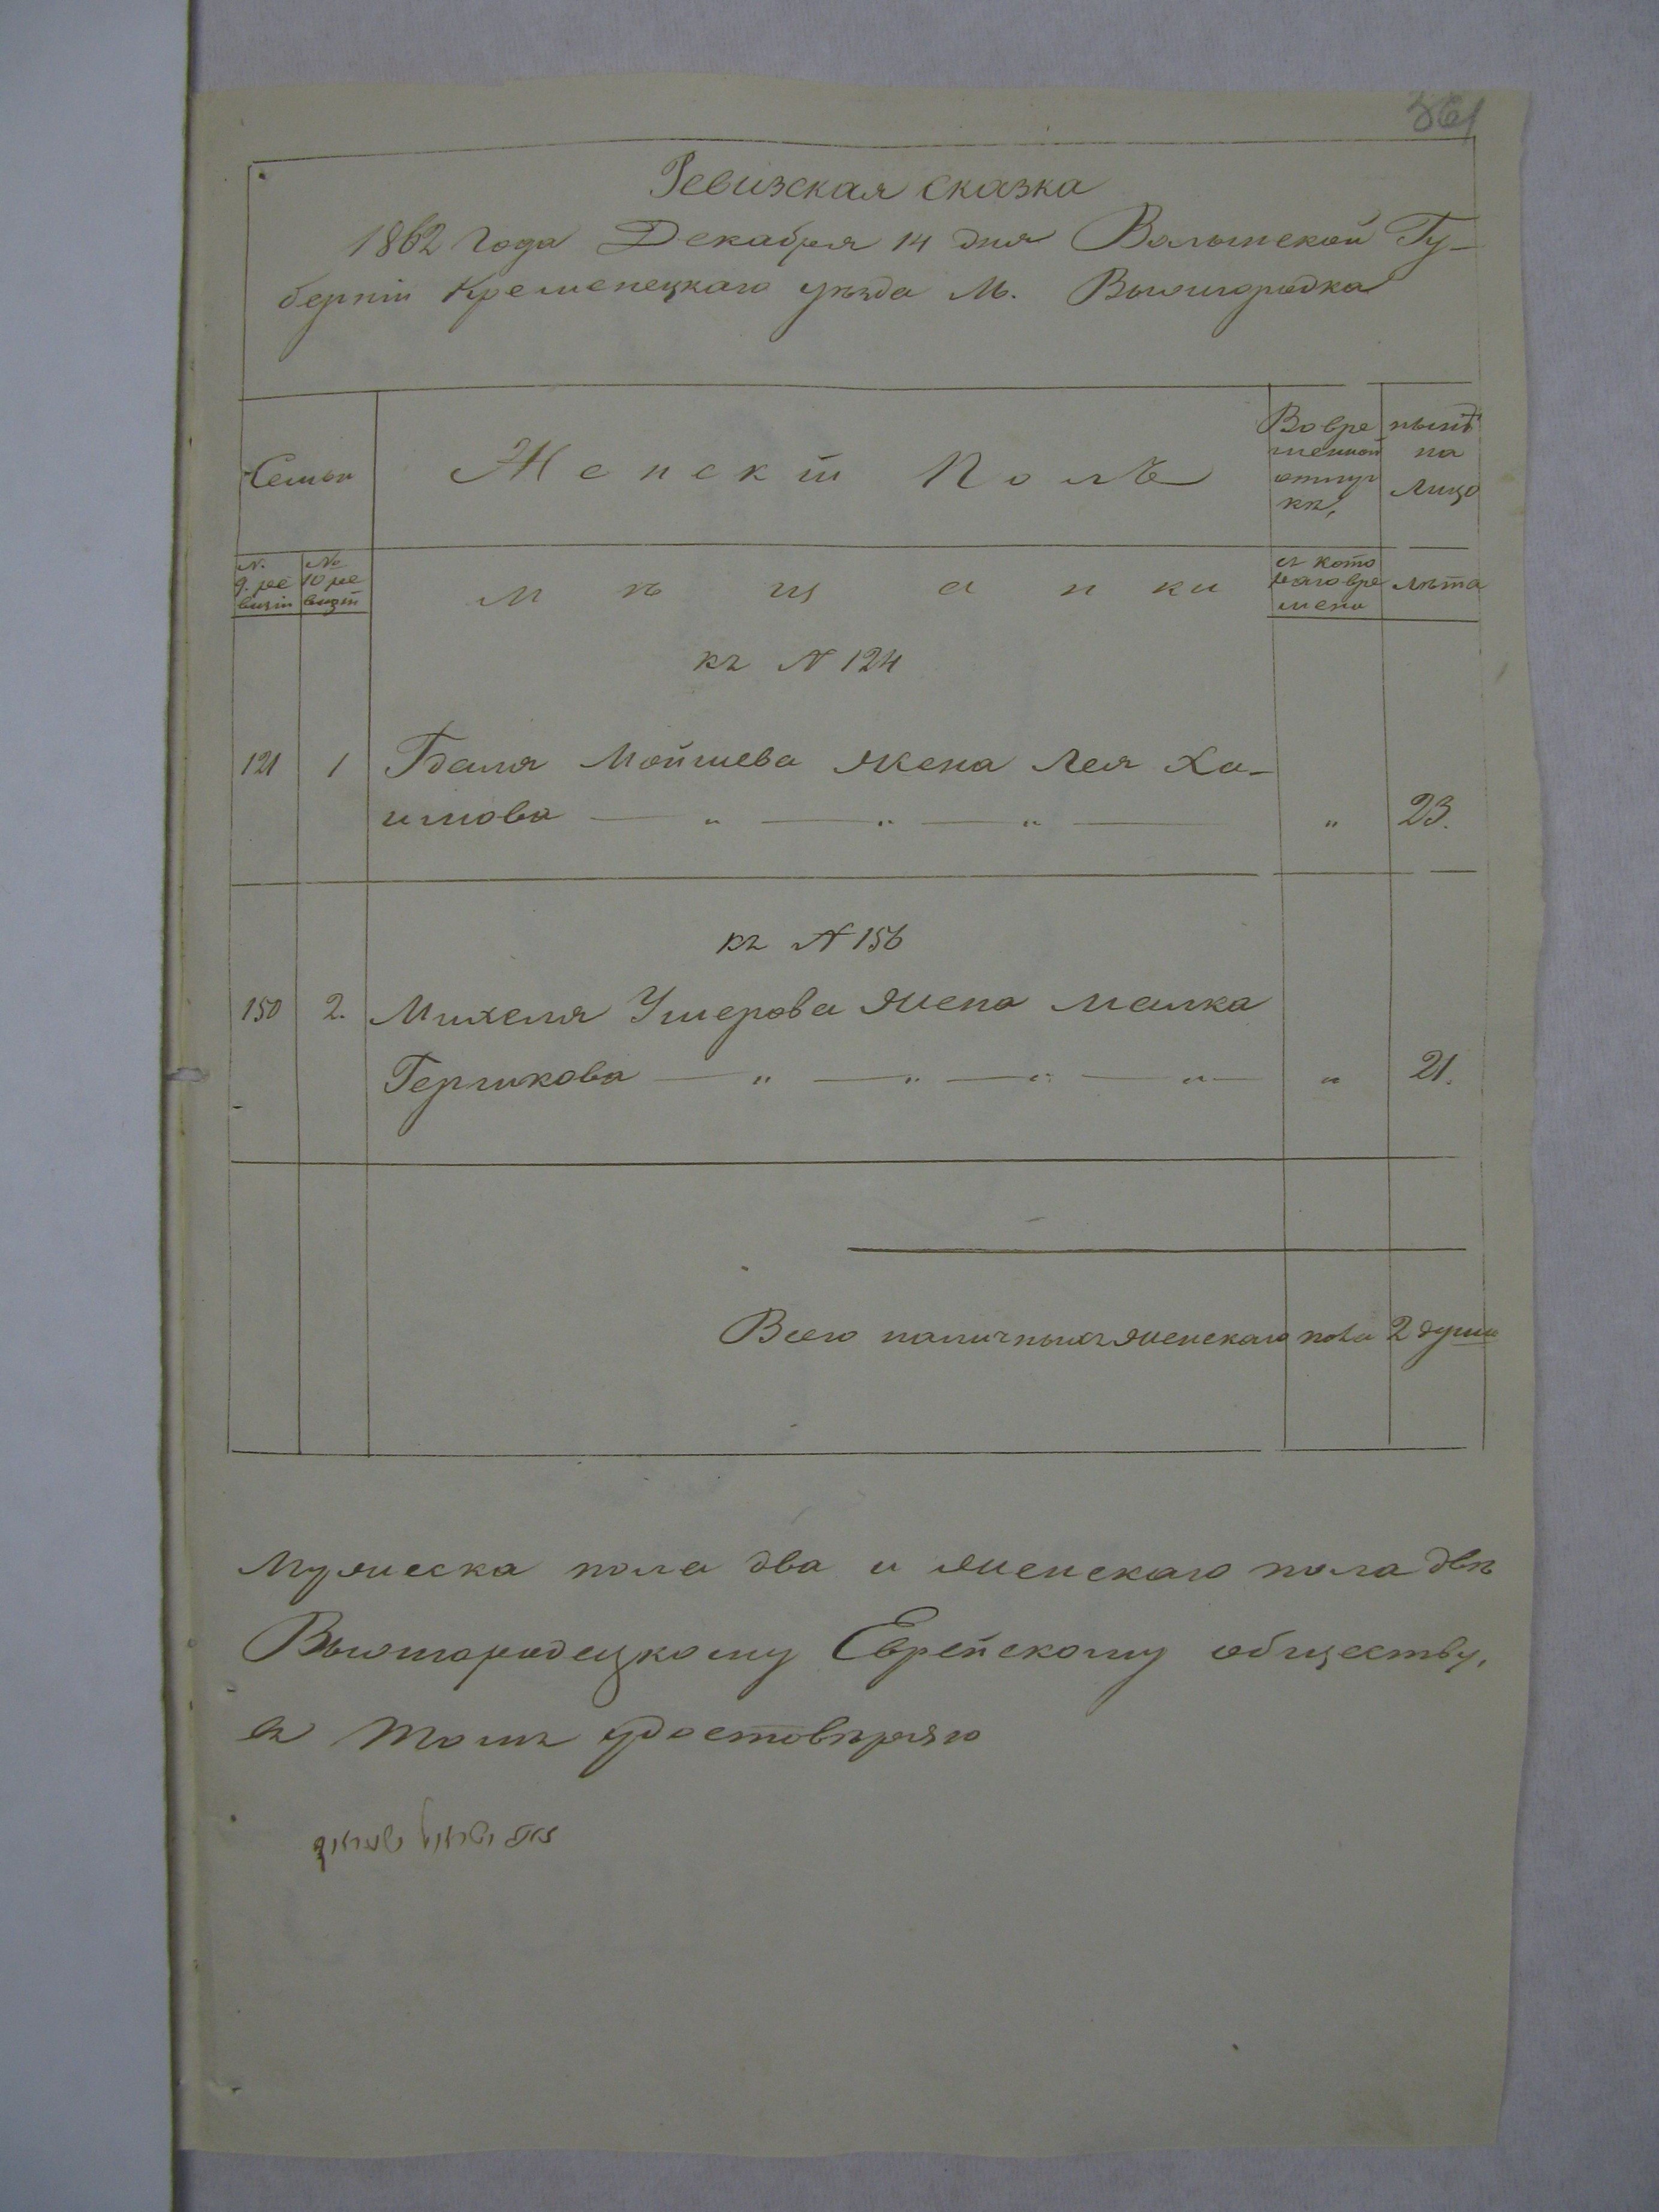 361
Ревизская сказка
1862 года Декабря 14 дня Волынской Гу-
берніи Кременецкаго уѣзда М. Вышгородка
Семьи
Женскій Полъ
Во вре
менной
отлуч
кѣ,
нынѣ
на
лицо
N.
9. ре
визіи
№
10 ре
визіи
мѣщанки
съ кото
раго вре
мени
лѣта
къ N 124
121 1 Гдаля Мойшева жена Лея Ха-
имова — „ — „ — „ — „ 23.
къ N 156
150 2. Михеля Ушерова жена Малка
Гершкова — „ — „ — „ — „ — „ 21.
Всего наличныхъ женскаго пола 2 души
Мужеска пола два и женскаго пола двѣ
Вышгородецкому Еврейскому обществу,
въ томъ удостовѣряю
ישראל